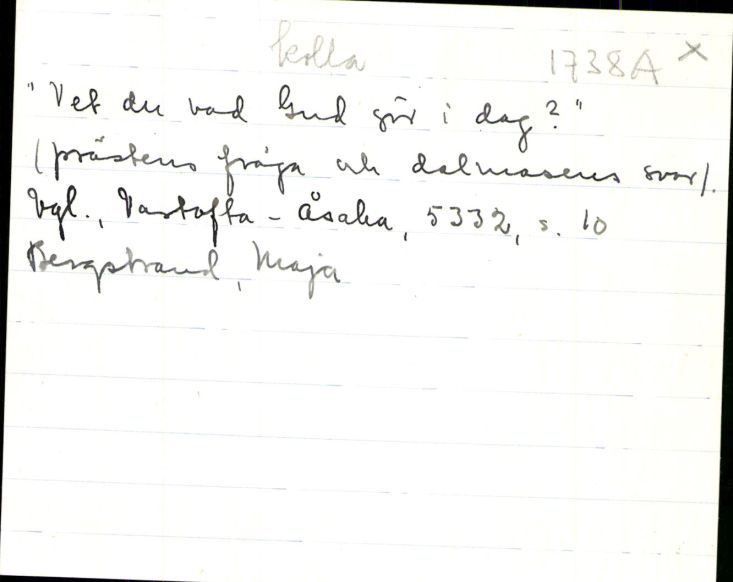 kolla 1738A x
"Vet du vad Gud gör i dag?"
(prästens fråga och dalmasens svar).
Vgl., Vartofta-Åsaka, 5332, s. 10
Bergstrand, Maja